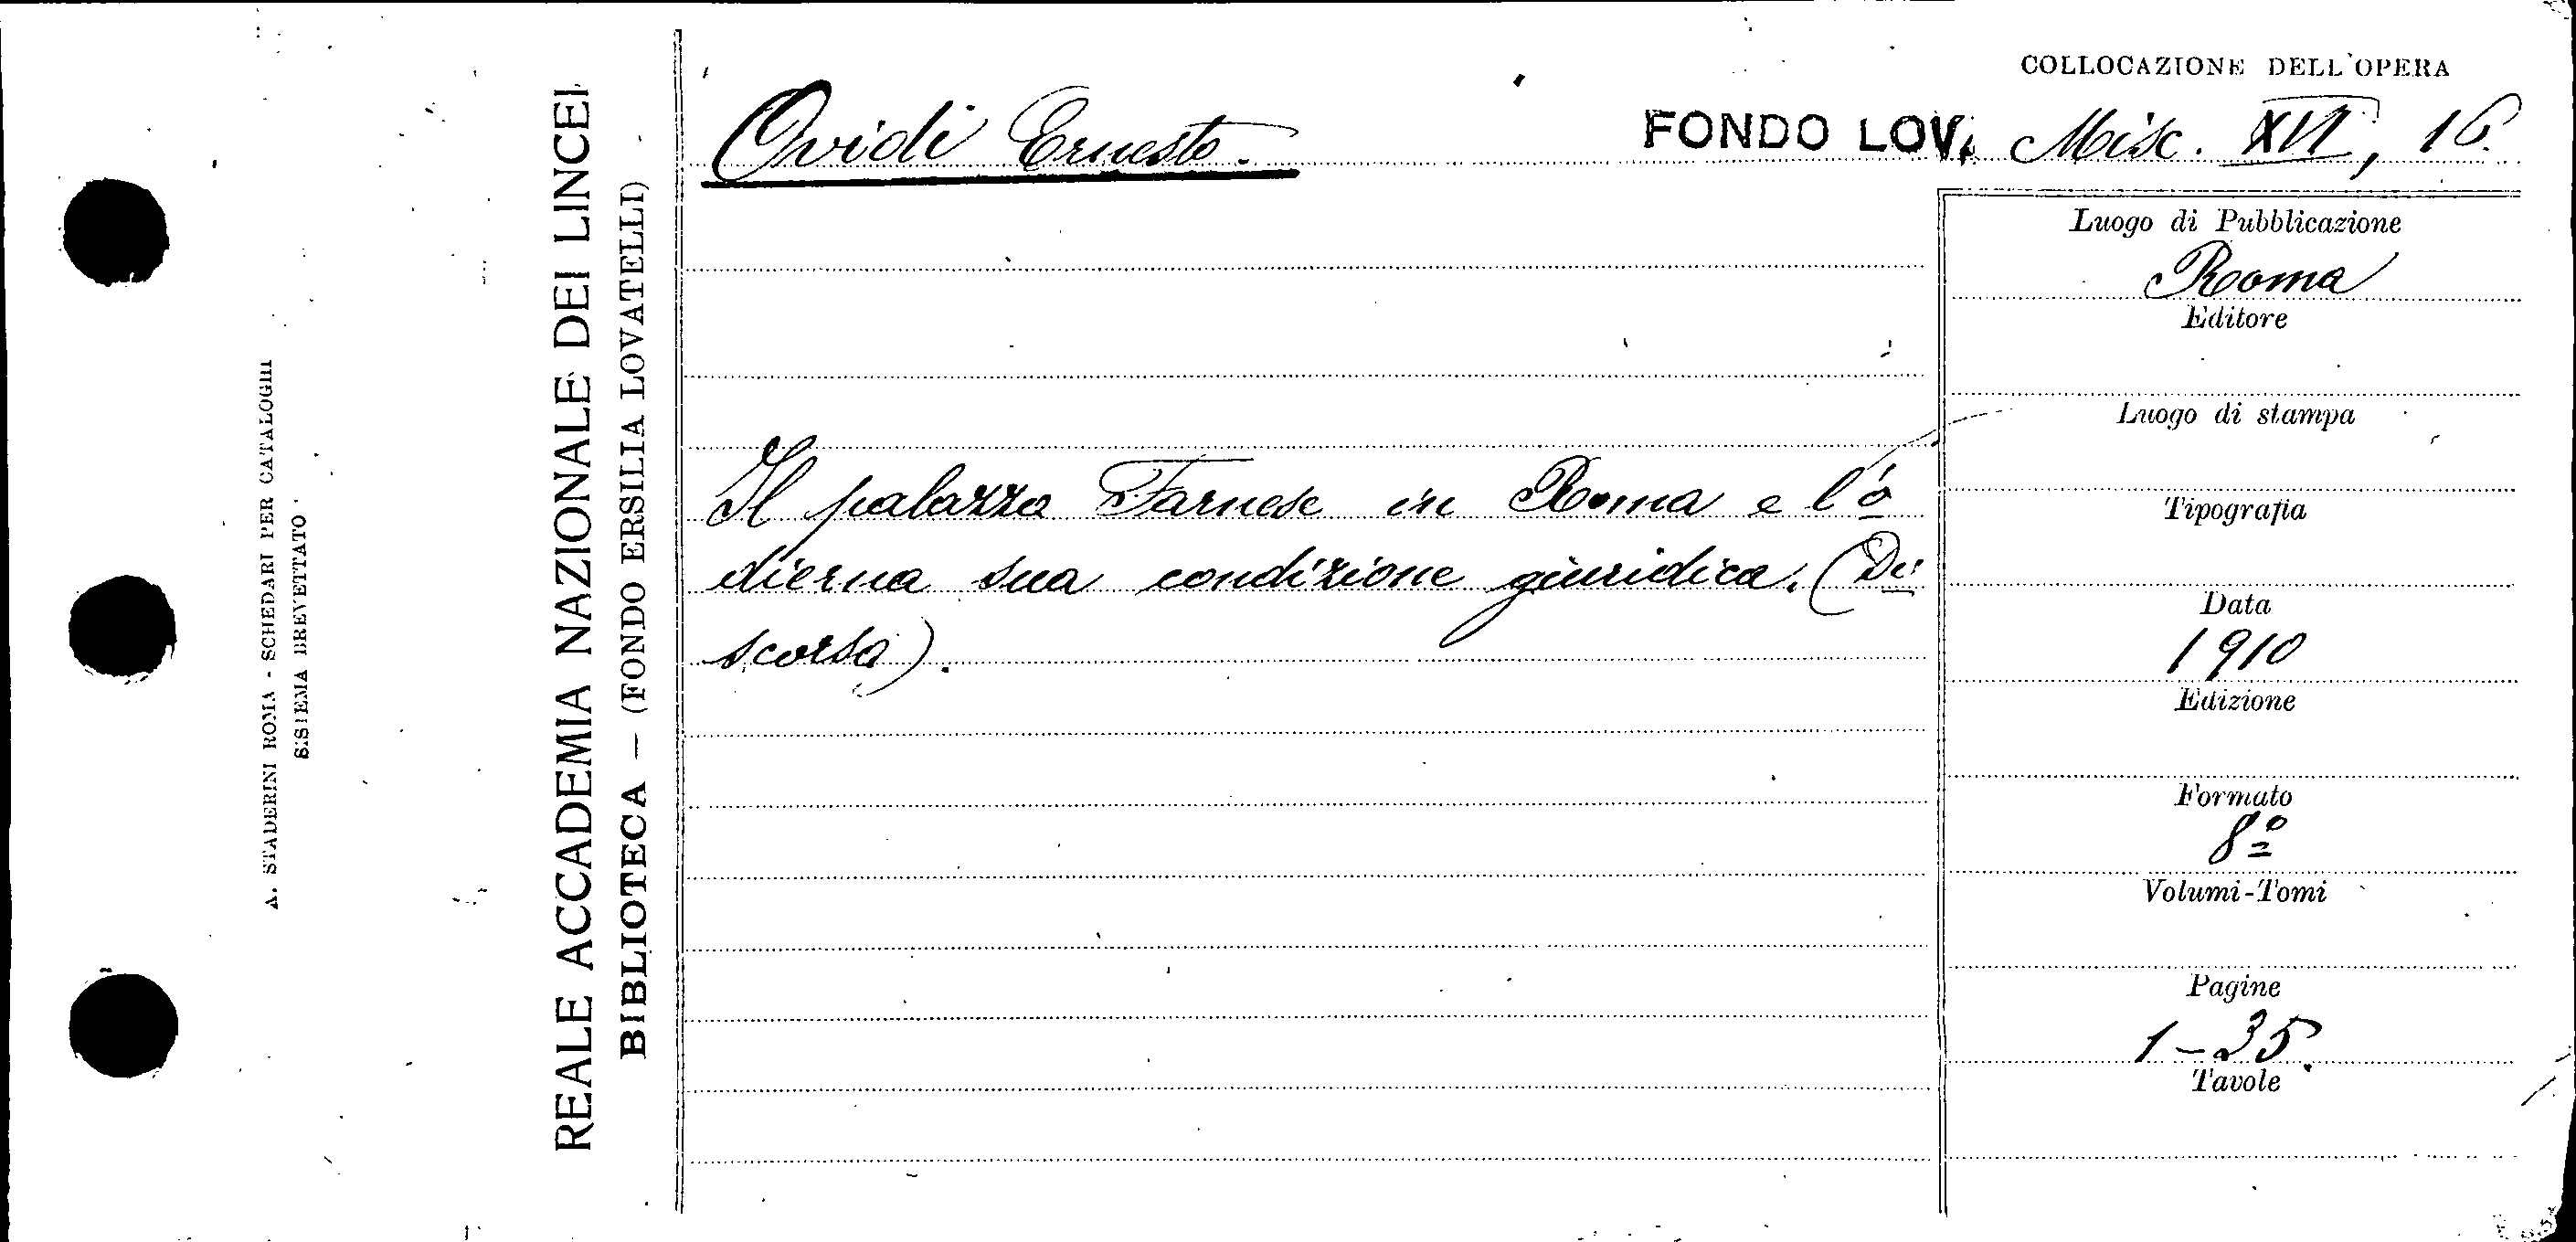 A. STADERINI ROMA - SCHEDARI PER CATALOGHI
SISTEMA BREVETTATO
REALE ACCADEMIA NAZIONALE DEI LINCEI
BIBLIOTECA — (FONDO ERSILIA LOVATELLI)
Ovidi Ernesto.
COLLOCAZIONE DELL'OPERA
FONDO LOV. Misc. XVI, 16.
Il palazzo Farnese in Roma e l'o
dierna sua condizione giuridica. (Di
scorso).
Luogo di Pubblicazione
Roma
Editore
Luogo di stampa
Tipografia
Data
1910
Edizione
Formato
8º
Volumi-Tomi
Pagine
1-35.
Tavole